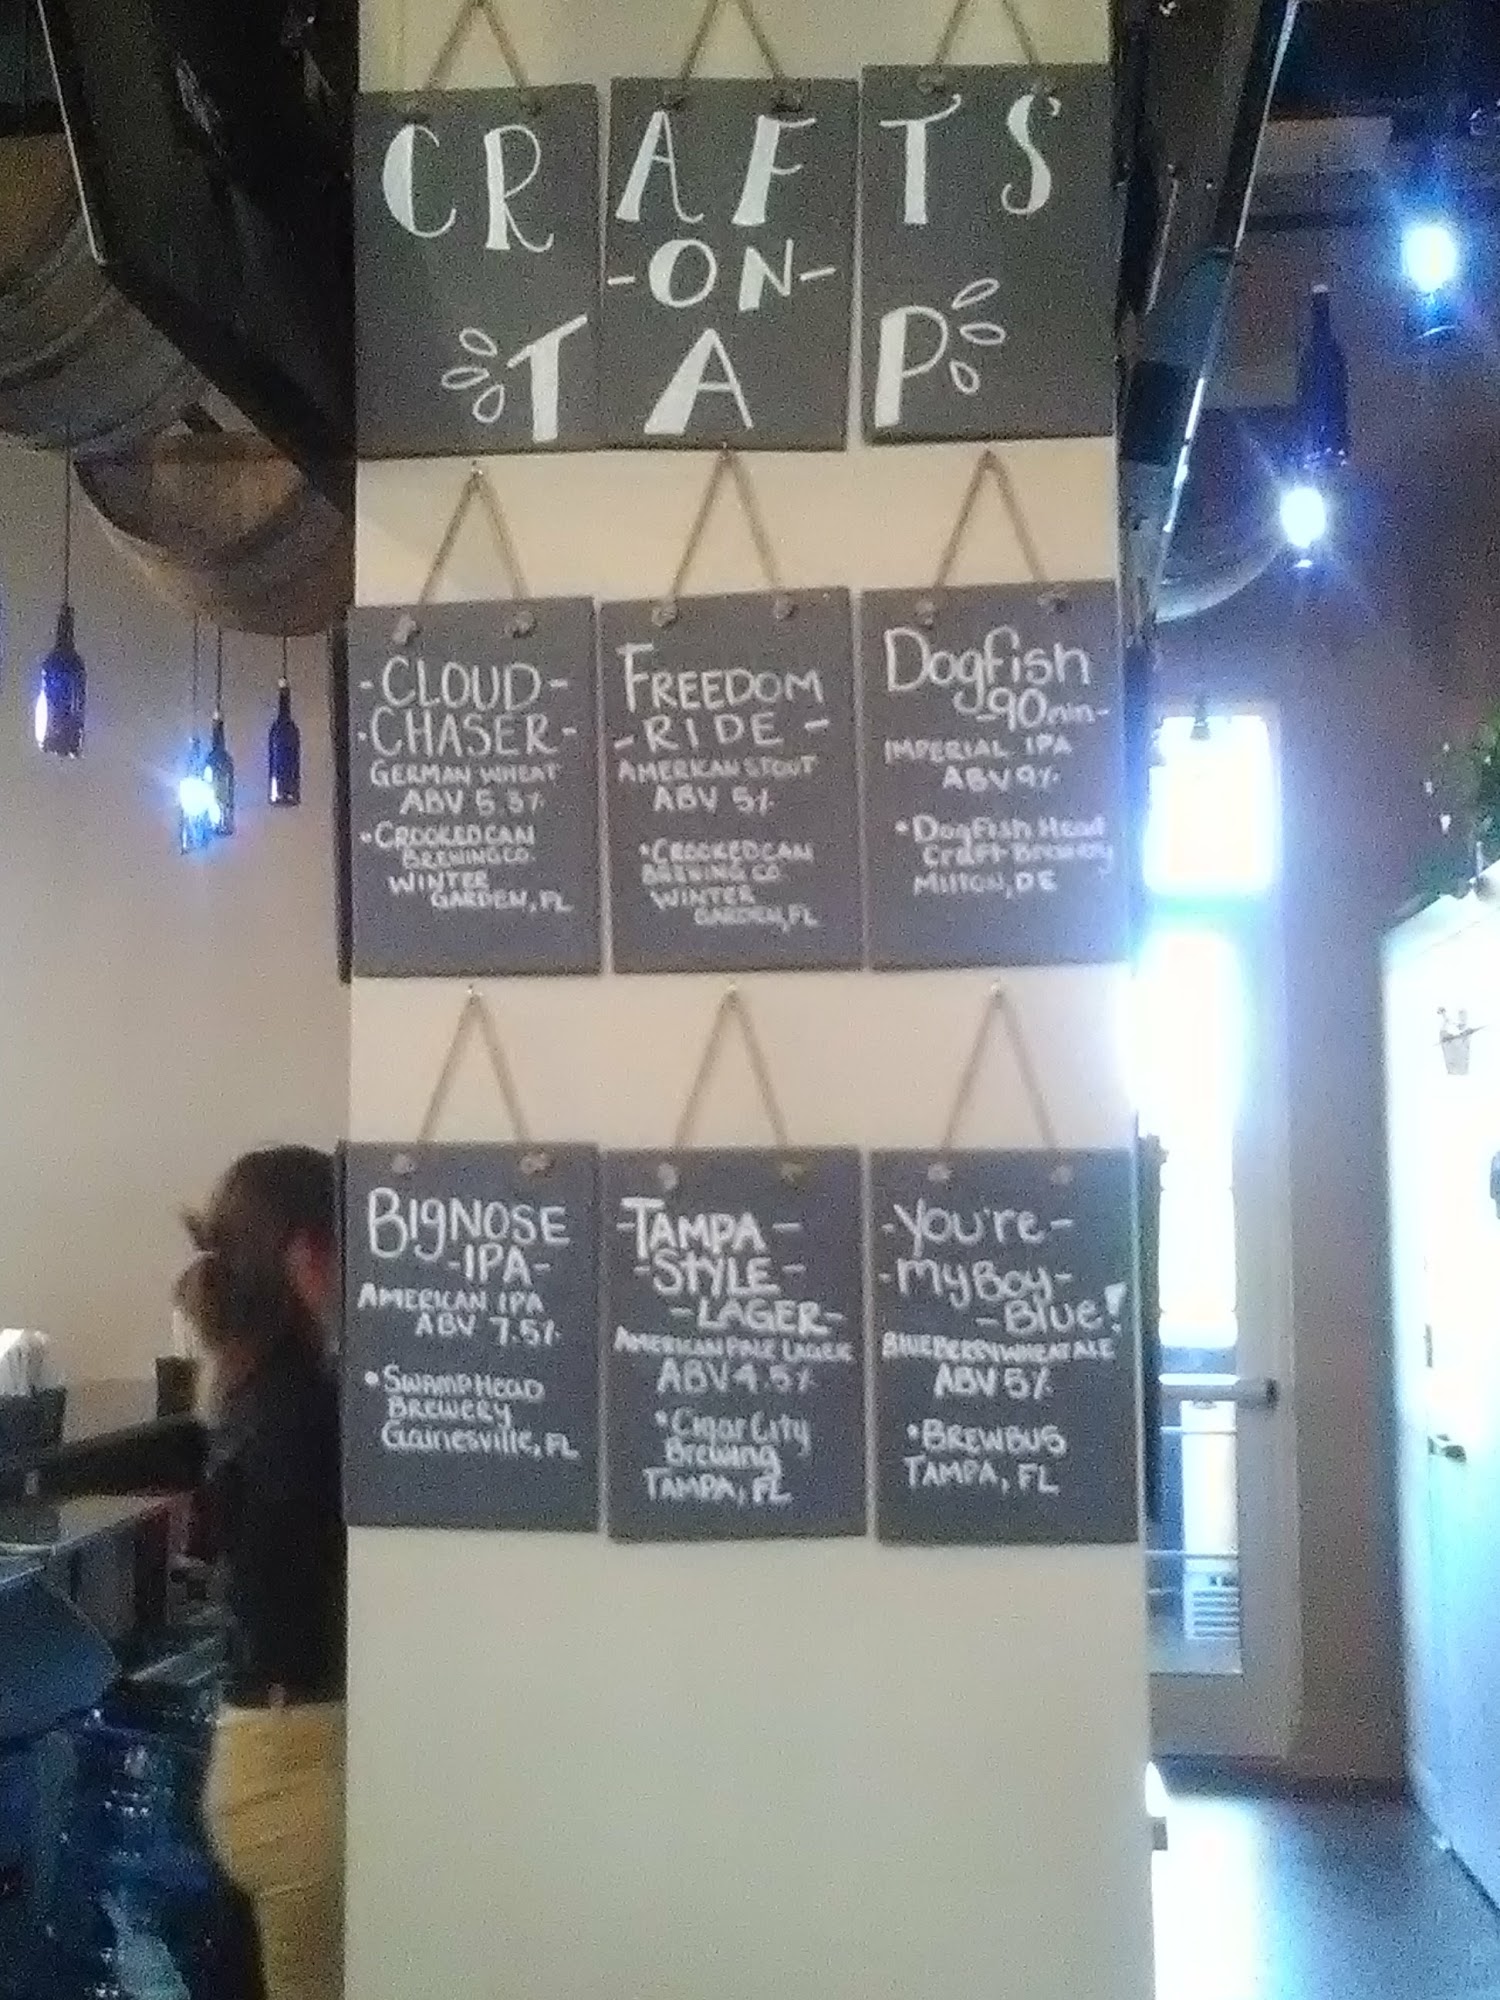 CRAFTS
-ON-
TAP
-CLOUD-
-CHASER-
GERMAN WHEAT
ABV 5.3%
•CROOKED CAN
BREWING CO.
WINTER
GARDEN, FL
FREEDOM
-RIDE-
AMERICAN STOUT
ABV 5%
•CROOKED CAN
BREWING CO
WINTER
GARDEN, FL
Dogfish
-90 min-
IMPERIAL IPA
ABV 9%
•Dogfish Head
Craft Brewery
Milton, DE
BIGNOSE
-IPA-
AMERICAN IPA
ABV 7.5%
•SWAMP HEAD
BREWERY
Gainesville, FL
-TAMPA-
-STYLE-
-LAGER-
AMERICAN PALE LAGER
ABV 4.5%
•Cigar City
Brewing
TAMPA, FL
-You're-
-My Boy-
-Blue!
BLUEBERRY WHEAT ALE
ABV 5%
•BREWBUS
TAMPA, FL